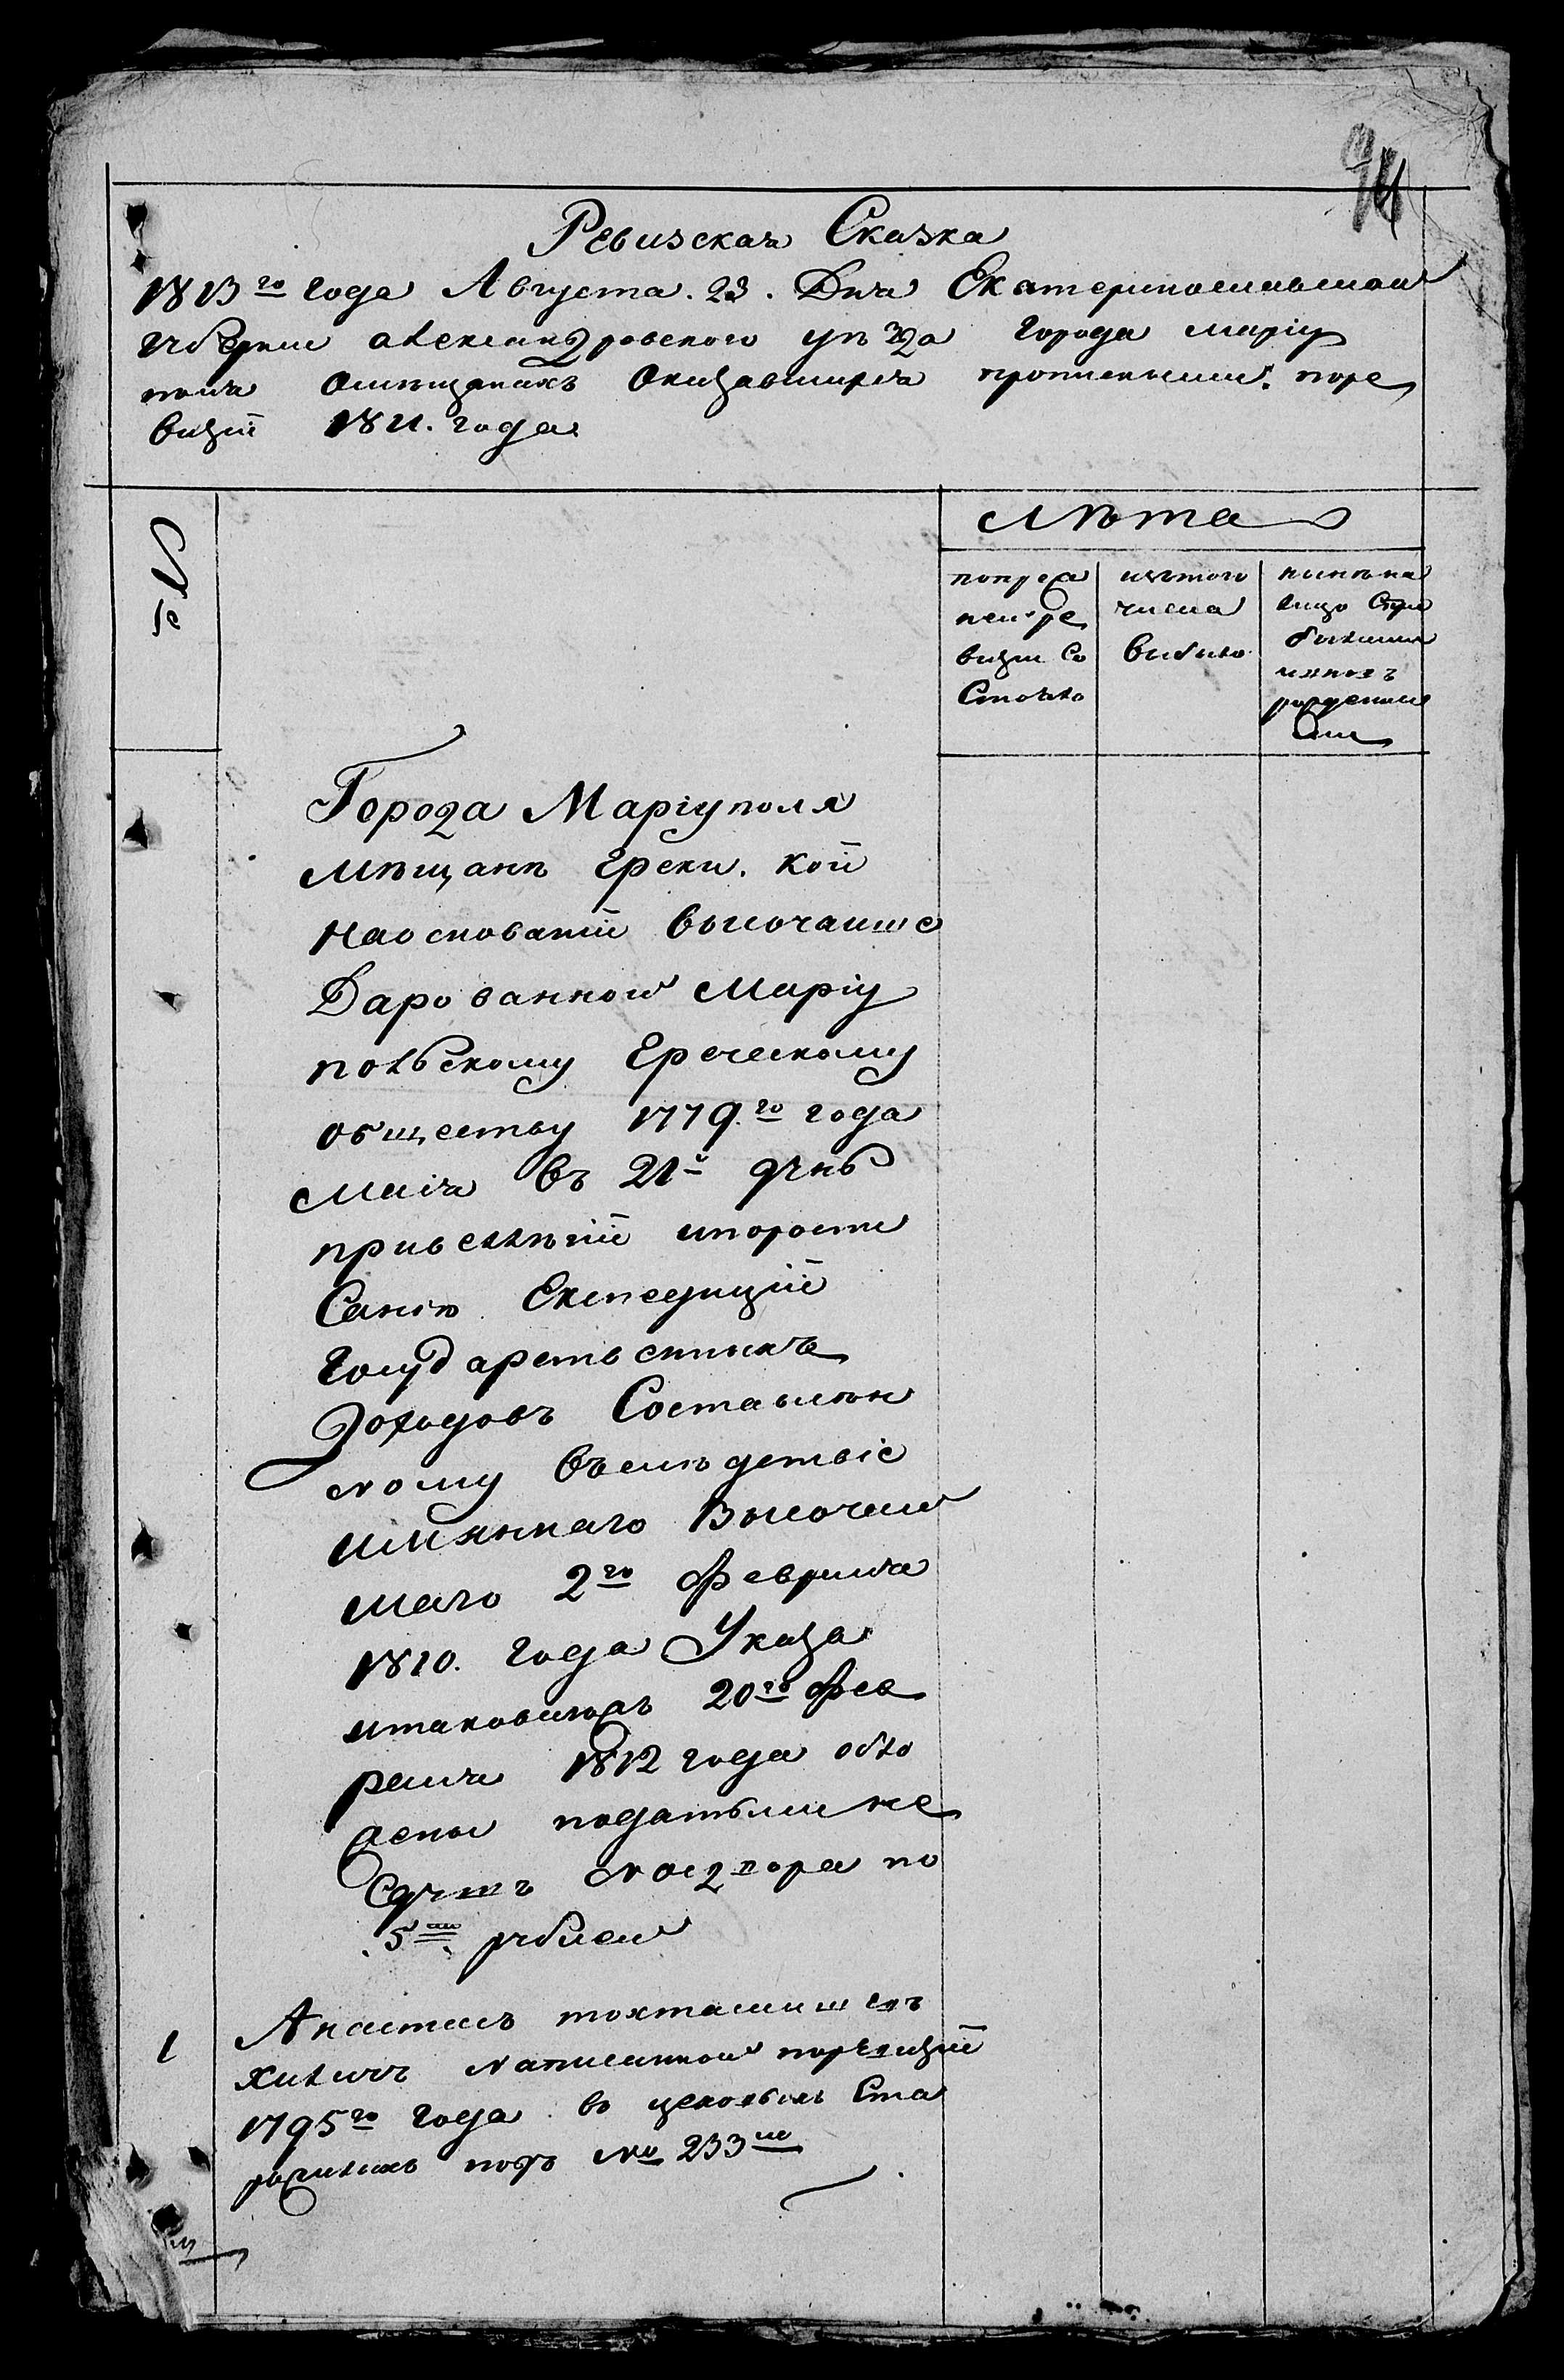 Ревизская Сказка
1813го года Августа. 23. Дня Екатеринославской
губернии александровского уезда города марiу
поля омещанахъ оказавшихся прописными. поре
визiи 1811. года
№е
лѣта
попреж
ней ре
визiи Со
Стояло
изътого
числа
выбыло
нынѣ на
лицо
рожденны
ми
Города Марiуполя
мѣщанѣ греки. кои
наоснованiи высочаише
Дарованной марiу
польскому греческому
обществу 1779.го года
маiя въ 21й день
привеллѣгiи ипороспи
Санiю Експедицiи
государственныхъ
доходовъ Составлен
ному въследствiе
имяннаго Высочаи
шаго 2го февраля
1810. года Указа
итаковогожъ 20го фев
раля 1812 года обло
жены податьми не
Съдушъ но издвора по
.5ти. рублеи
1 Анастасъ тохтамышъ
написанной поревизiи
1795го года. во цеховыхъ Ста
рожилыхъ подъ №м 233м